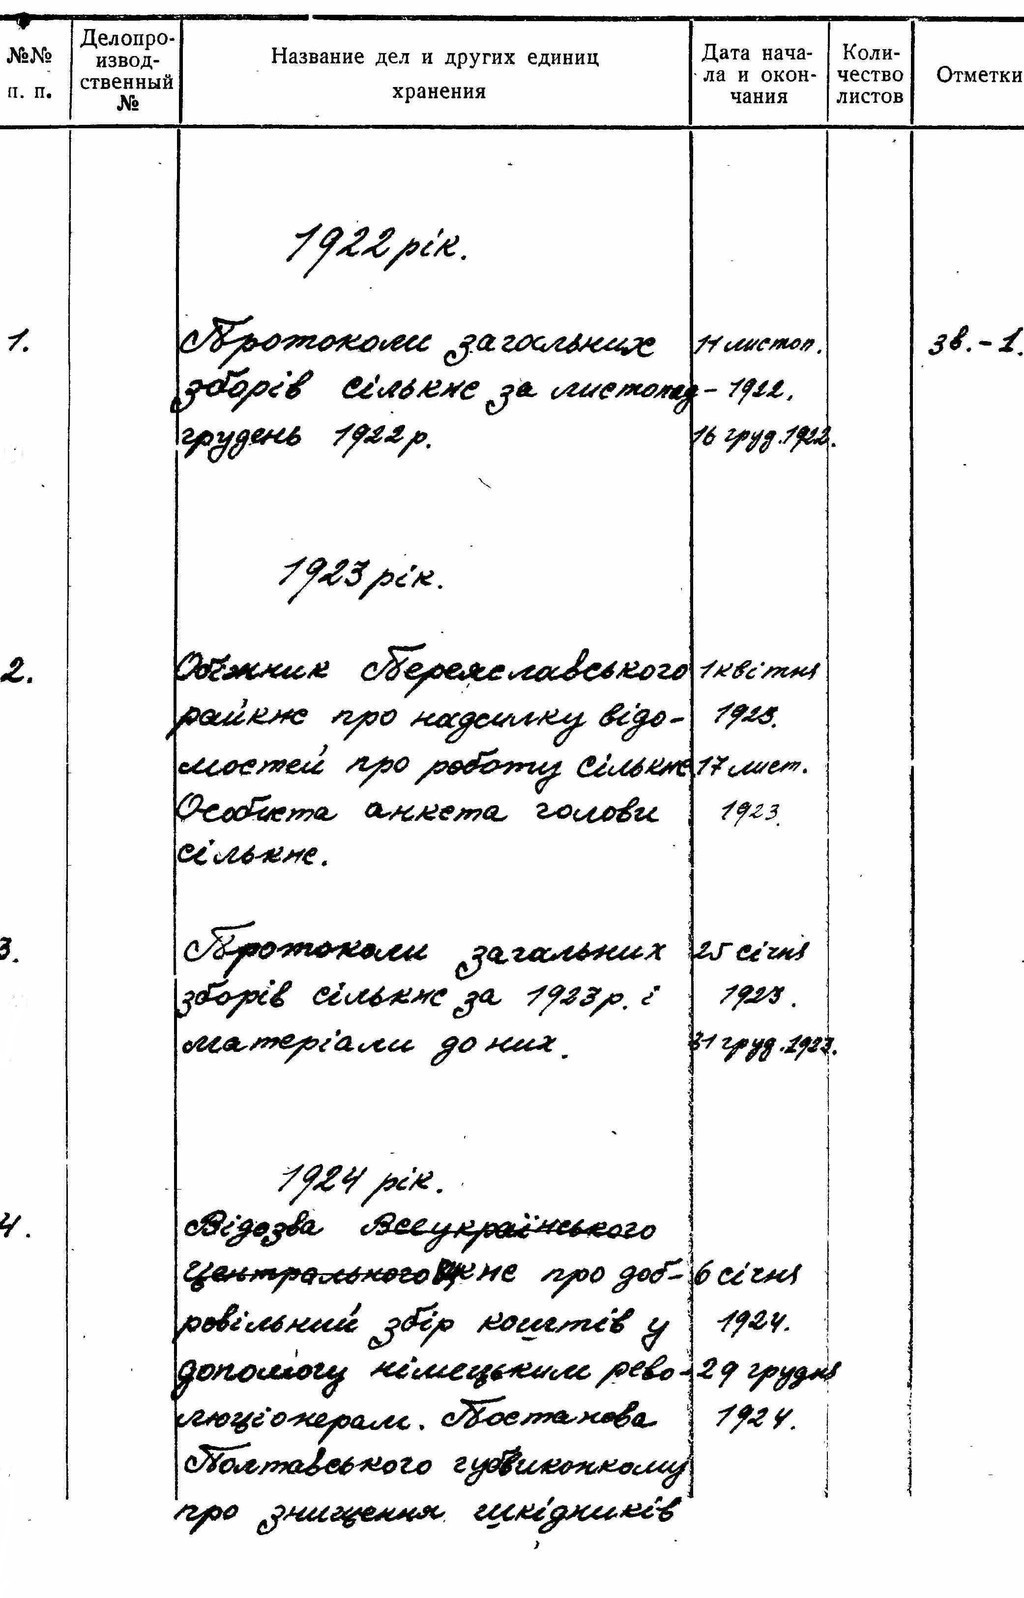 №№ п. п.
Делопро-
извод-
ственный
№
Название дел и других единиц
хранения
Дата нача-
ла и окон-
чания
Коли-
чество
листов
Отметки
1922 рік.
1. Протоколи загальних 11 листоп. зв. - 1.
зборів сількнс за листопад - 1922.
грудень 1922 р. 16 груд. 1922.
1923 рік.
2. Обіжник Переяславського 1 квітня
райкнс про надсилку відо- 1923.
мостей про роботу сількнс 17 лист.
Особиста анкета голови 1923.
сількнс.
3. Протоколи загальних 25 січня
зборів сількнс за 1923 р. і 1923.
матеріали до них. 31 груд. 1923.
1924 рік.
4. Відозва Всеукраїнського
центрального кнс про доб- 6 січня
ровільний збір коштів у 1924.
допомогу німецьким рево- 29 грудня
люціонерам. Постанова 1924.
Полтавського губвиконкому
про знищення шкідників